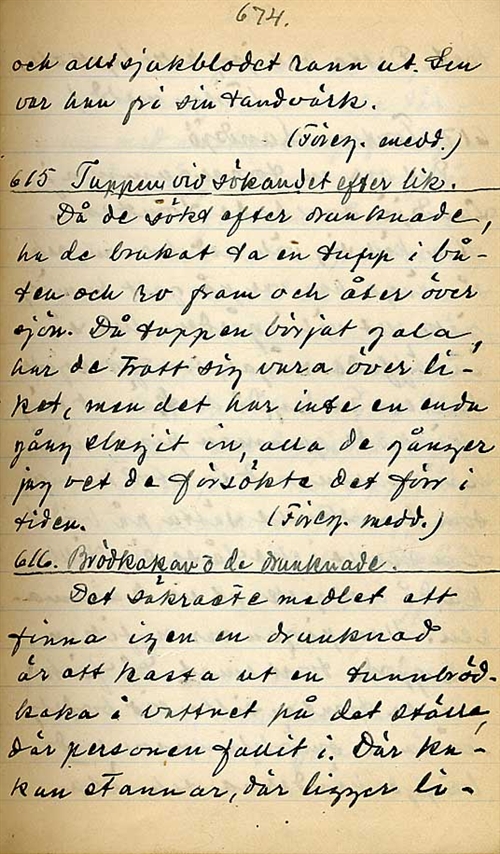 674.
och allt sjukblodet rann ut. Sen
var hun fri sin tandvärk.
(Föreg. medd.)
615 Tuppen vid sökandet efter lik.
Då de sökt efter drunknade,
ha de brukat ta en tupp i bå-
ten och ro fram och åter över
sjön. Då tuppen börjat gala,
har de trott sig vara över li-
ket, men det har inte en enda
gång slagit in, alla de gånger
jag vet de försökte det förr i
tiden. (Föreg. medd.)
616. Brödkakan o de drunknade.
Det säkraste medlet att
finna igen en drunknad
är att kasta ut en tunnbröd-
kaka i vattnet på det ställe,
där personen fallit i. Där ka-
kan stannar, där ligger li-